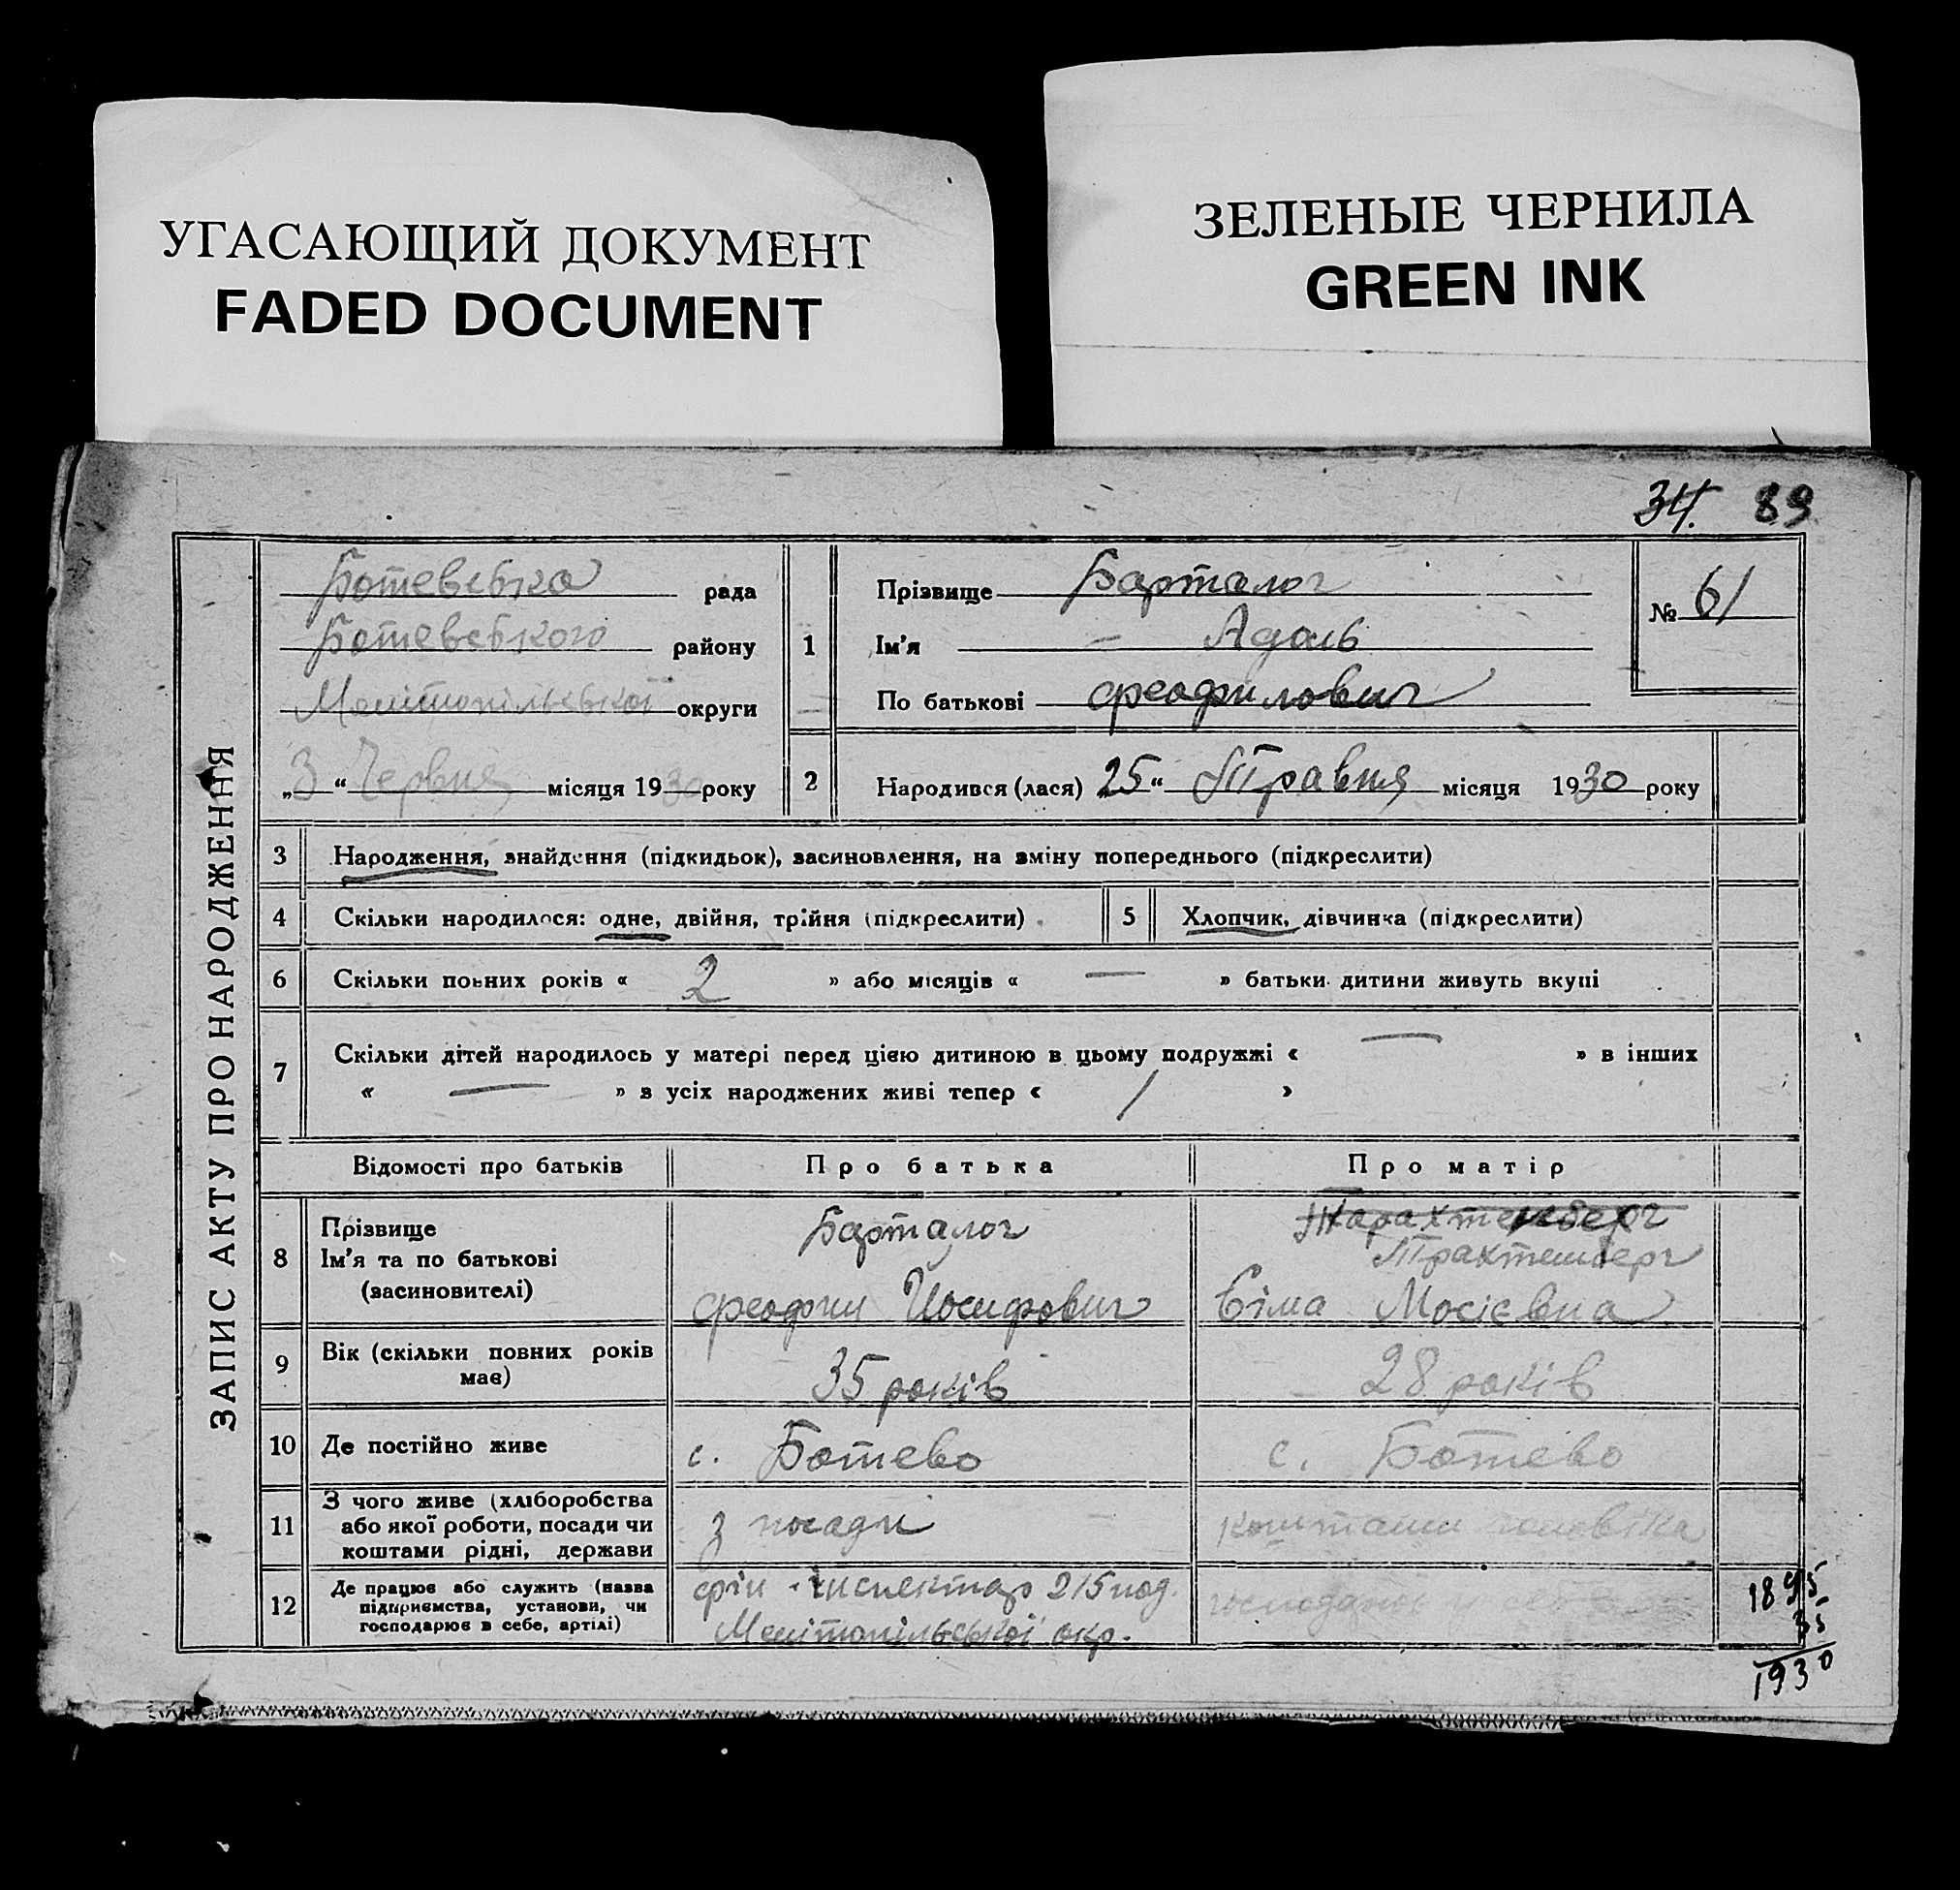 УГАСАЮЩИЙ ДОКУМЕНТ
FADED DOCUMENT
ЗЕЛЕНЫЕ ЧЕРНИЛА
GREEN INK
34. 89
ЗАПИС АКТУ ПРО НАРОДЖЕННЯ
Ботевська рада
Ботевського району
Мелітопільської округи
„3“ Червня місяця 1930 року
1
Прізвище Барталог
Ім'я Адоль
По батькові Феофилович
№ 61
2 Народився (лася) 25 “ Травня місяця 1930 року
3 Народження, знайдення (підкидьок), засиновлення, на зміну попереднього (підкреслити)
4 Скільки народилося: одне, двійня, трійня (підкреслити)
5 Хлопчик, дівчинка (підкреслити)
6 Скільки повних років « 2 » або місяців « — » батьки дитини живуть вкупі
7 Скільки дітей народилось у матері перед цією дитиною в цьому подружжі « — » в інших
« — » в усіх народжених живі тепер « 1 »
Відомості про батьків Про батька Про матір
8 Прізвище
Ім'я та по батькові
(засиновителі)
Барталог
Феофил Йосифович
Трахтенберг
Сіма Мосієвна
9 Вік (скільки повних років
має)
35 років 28 років
10 Де постійно живе с. Ботево с. Ботево
11 З чого живе (хліборобства
або якої роботи, посади чи
коштами рідні, держави
з посади коштами чоловіка
12 Де працює або служить (назва
підприємства, установи, чи
господарює в себе, артілі)
фін. інспектор 215 под.
Мелітопільської окр.
1895
35
1930